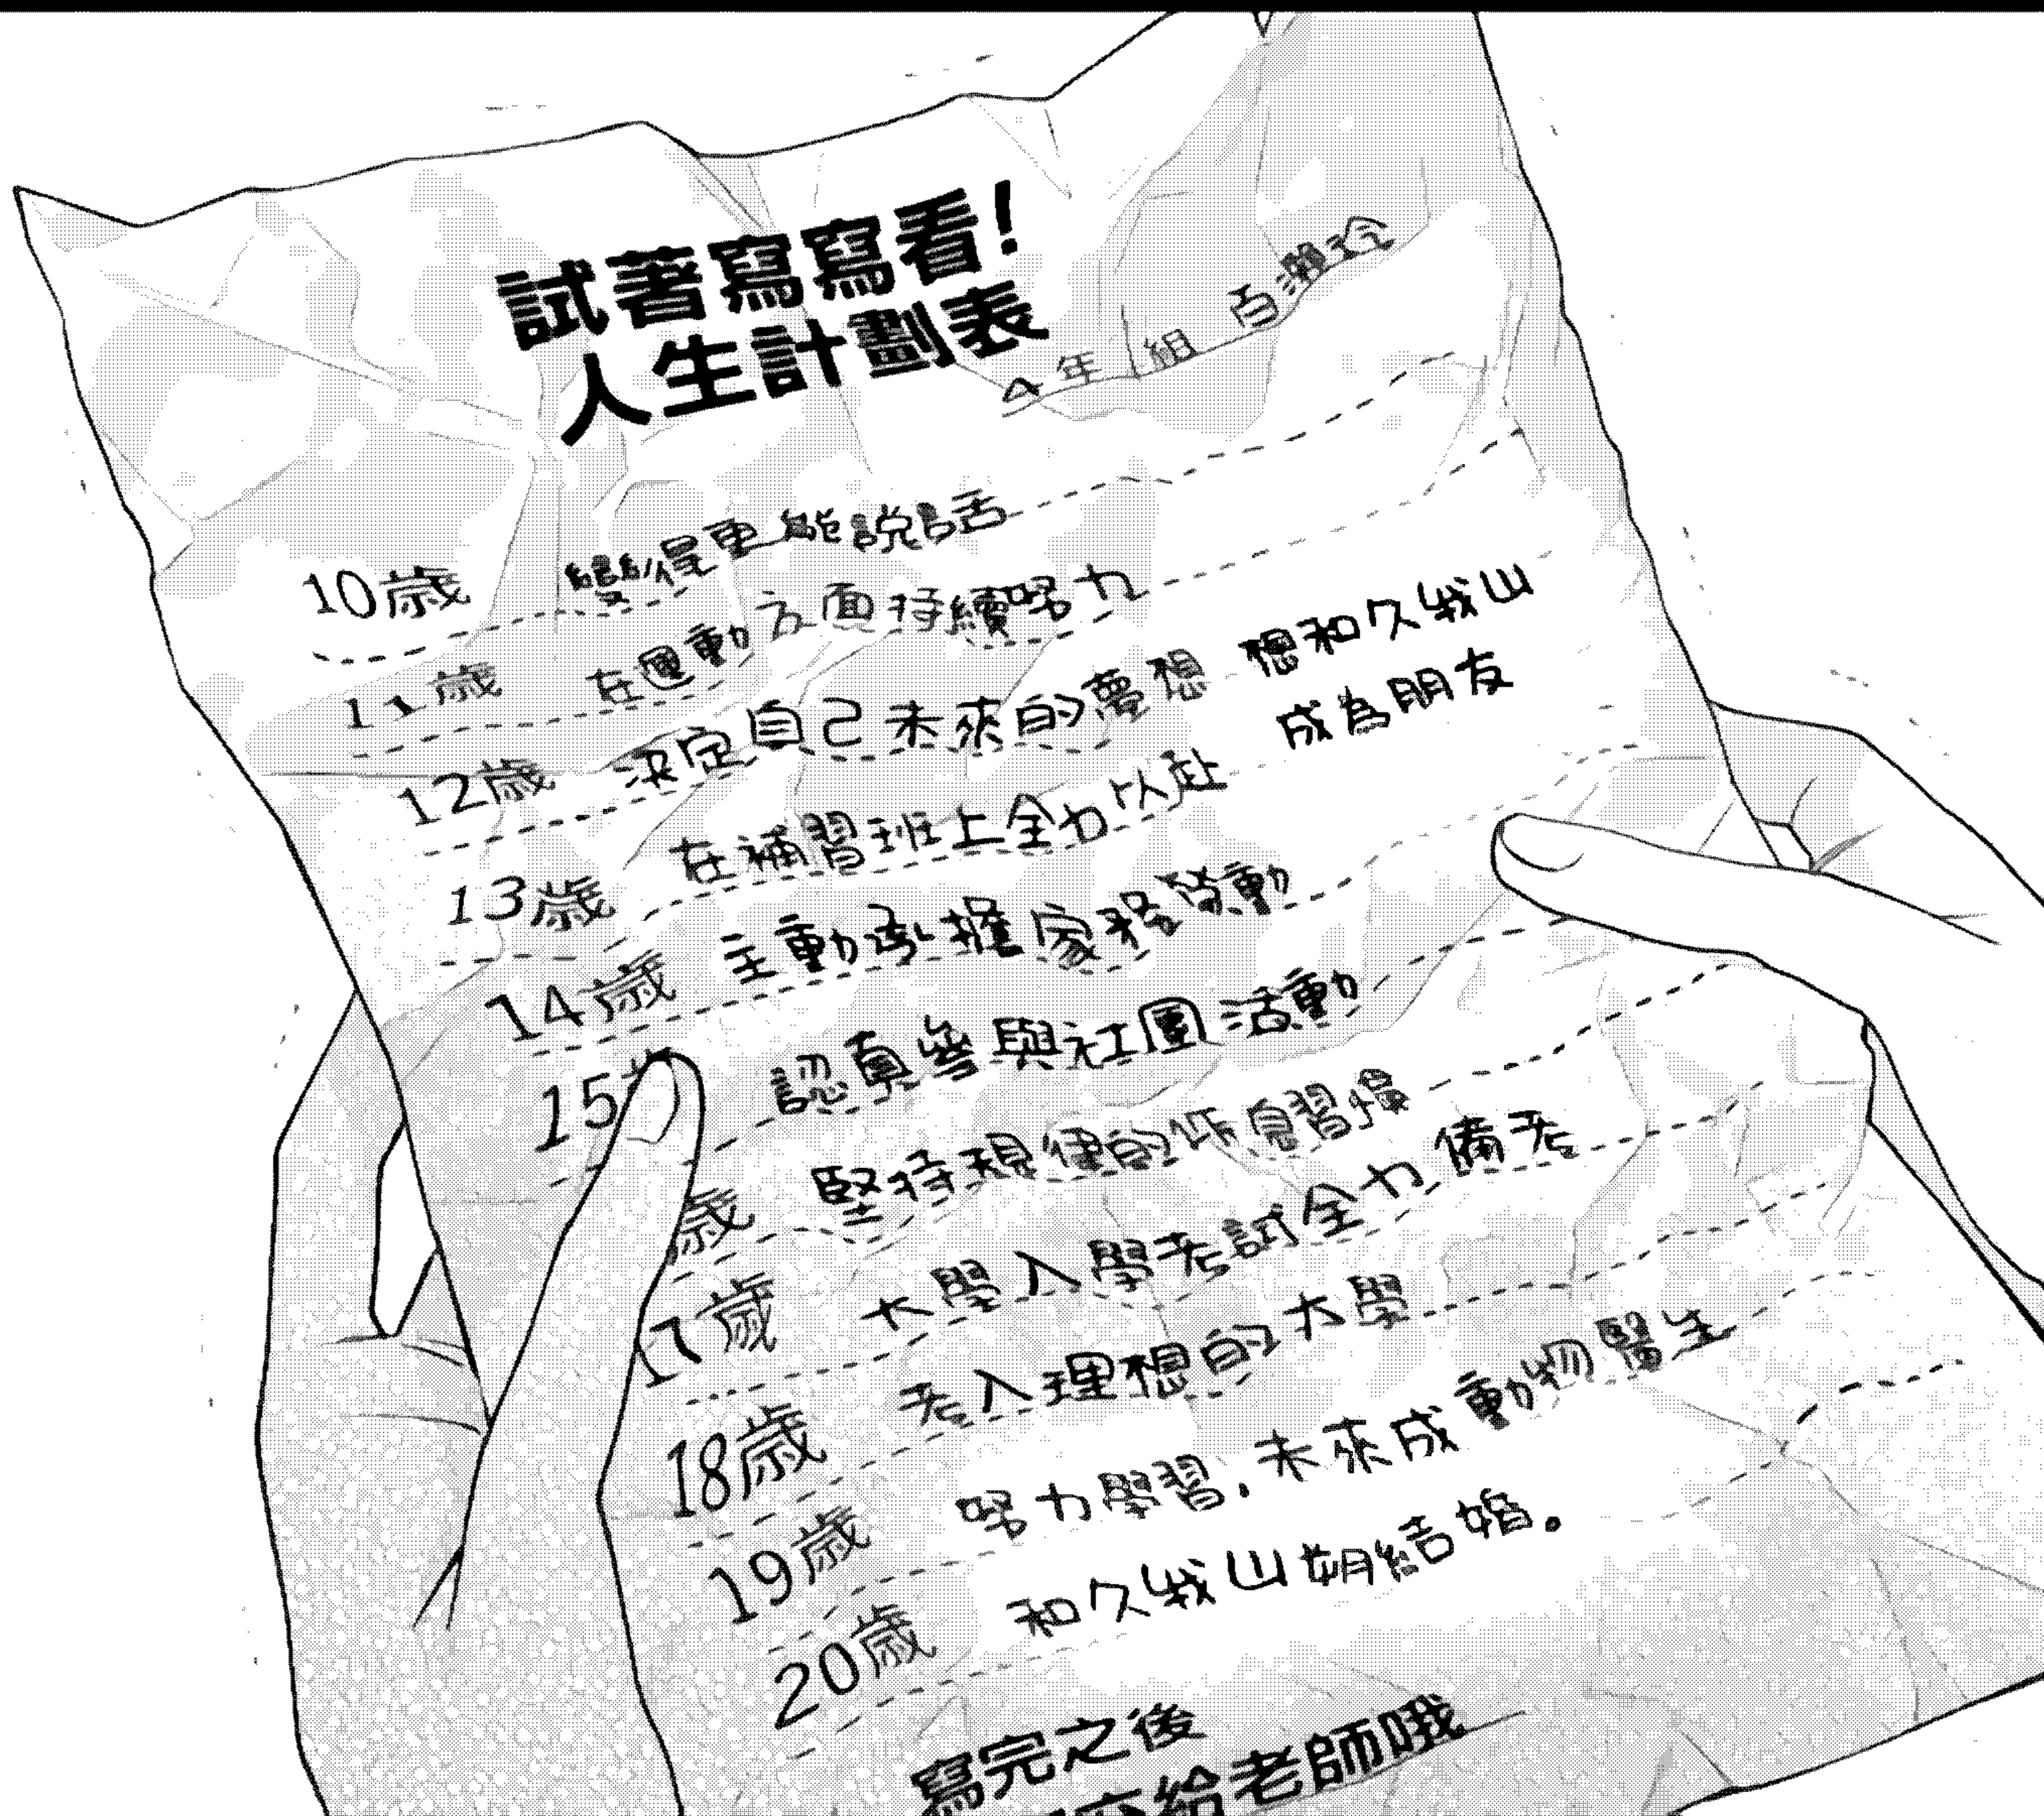 試著寫寫看!
人生計劃表
4年1組 百瀨玲
10歲 變得更能說話
11歲 在運動方面持續努力
12歲 決定自己未來的夢想 想和久我山
成為朋友
13歲 在補習班上全力以赴
14歲 主動承擔家務勞動
15 認真參與社團活動
歲 堅持規律的作息習慣
17歲 大學入學考試全力備考
18歲 考入理想的大學
19歲 努力學習.未來成動物醫生
20歲 和久我山朔結婚。
寫完之後
給老師哦